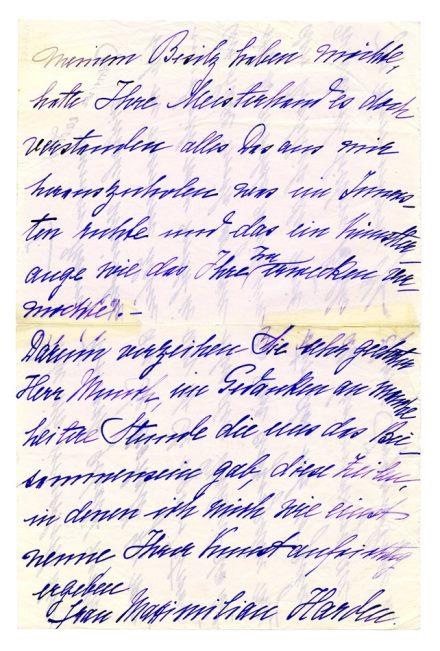 meinem Besitz haben möchte,
hatte Ihre Meisterhand es doch
verstanden alles das aus mir
herauszuholen was im Inners-
ten ruhte und das ein Künstler-
auge wie das Ihre zu erwecken ver-
mochte! –
Darum verzeihen Sie sehr geehrter
Herr Munch, im Gedanken an manche
heitre Stunde die uns das Bei-
sammensein gab, diese Zeilen,
in denen ich mich wie einst
nenne Ihrer Kunst aufrichtig
ergeben
Frau Maximilian Harden.